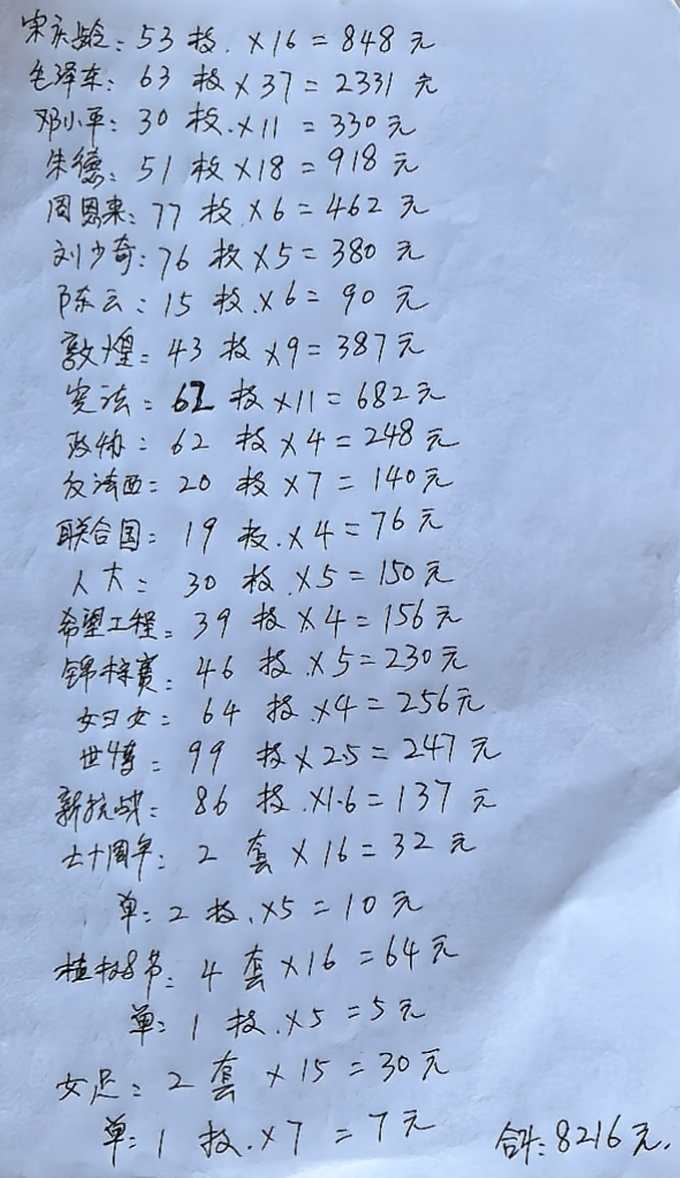 宋庆龄: 53 枚. ×16 = 848 元
毛泽东: 63 枚 ×37 = 2331 元
邓小平: 30 枚. ×11 = 330 元
朱德: 51 枚 ×18 = 918 元
周恩来: 77 枚 ×6 = 462 元
刘少奇: 76 枚 ×5 = 380 元
陈云: 15 枚. ×6 = 90 元
敦煌: 43 枚 ×9 = 387 元
宪法: 62 枚 ×11 = 682 元
政协: 62 枚 ×4 = 248 元
反法西: 20 枚 ×7 = 140 元
联合国: 19 枚. ×4 = 76 元
人大: 30 枚. ×5 = 150 元
希望工程: 39 枚 ×4 = 156 元
锦标赛: 46 枚. ×5 = 230 元
妇女: 64 枚. ×4 = 256 元
世博: 99 枚 ×2.5 = 247 元
新抗战: 86 枚. ×1.6 = 137 元
七十周年: 2 套 ×16 = 32 元
单: 2 枚. ×5 = 10 元
植树节: 4 套 ×16 = 64 元
单: 1 枚. ×5 = 5 元
女足: 2 套 ×15 = 30 元
单: 1 枚. ×7 = 7 元 合计: 8216 元.